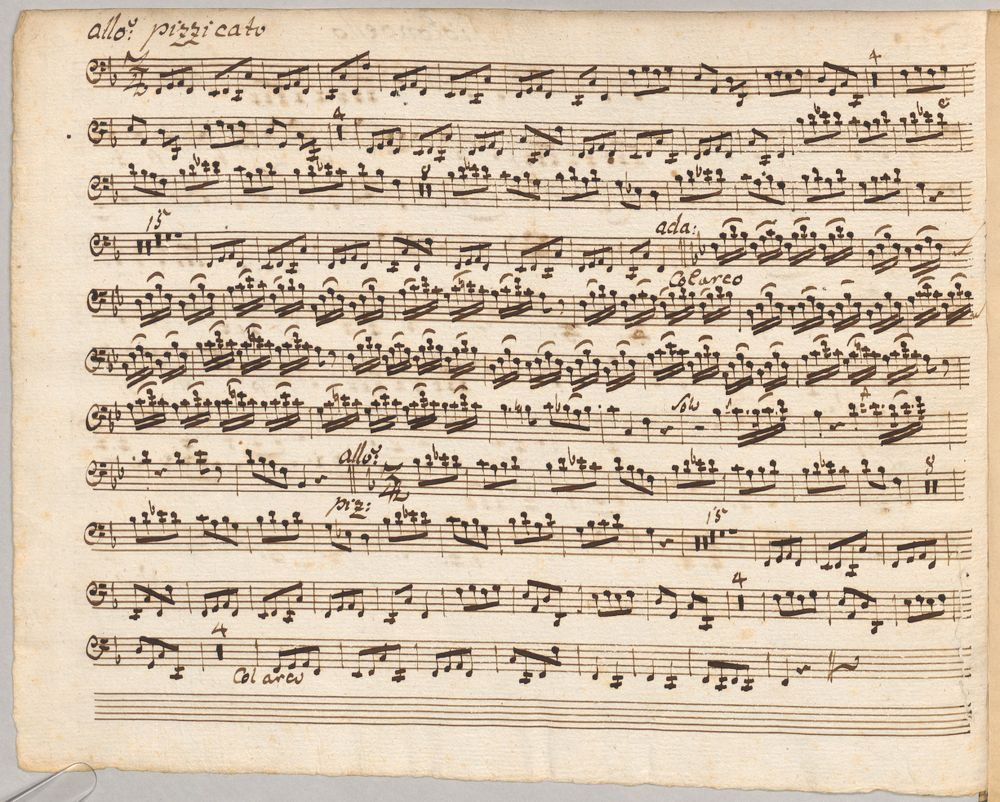 allo: pizzicato
4
4
8
15
ada:
Col arco
Solo
allo:
8
piz:
15
4
4
Col arco